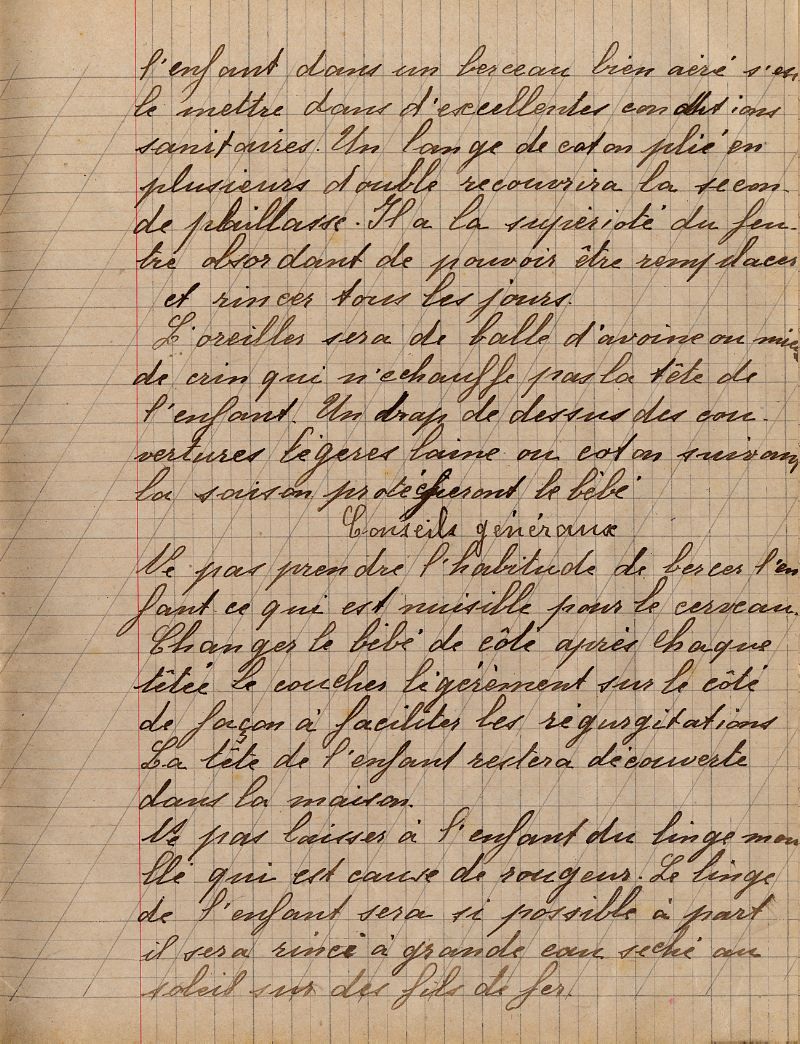 l'enfant dans un berceau bien aéré s'est
le mettre dans d'excellentes conditions
sanitaires. Un lange de coton plié en
plusieurs double recouvrira la secon-
de paillasse. Il a la supérioté du feu-
tre absordant de pouvoir être remplacer
et rincer tous les jours.
L'oreiller sera de balle d'avoine ou mieu
de crin qui n'echauffe pas la tête de
l'enfant. Un drap de dessus des cou-
vertures légeres laine ou coton suivant
la saison protégeront le bébé
Conseils généraux
Ne pas prendre l'habitude de bercer l'en
fant ce qui est nuisible pour le cerveau.
Changer le bébé de côté après chaque
tétée le coucher légérèment sur le côté
de façon à faciliter les régurgitations
La tête de l'enfant restera découverte
dans la maison.
Ne pas laisser à l'enfant du linge mou
llé qui est cause de rougeur. Le linge
de l'enfant sera si possible à part
il sera rincé à grande eau seché au
soleil sur des fils de fer.